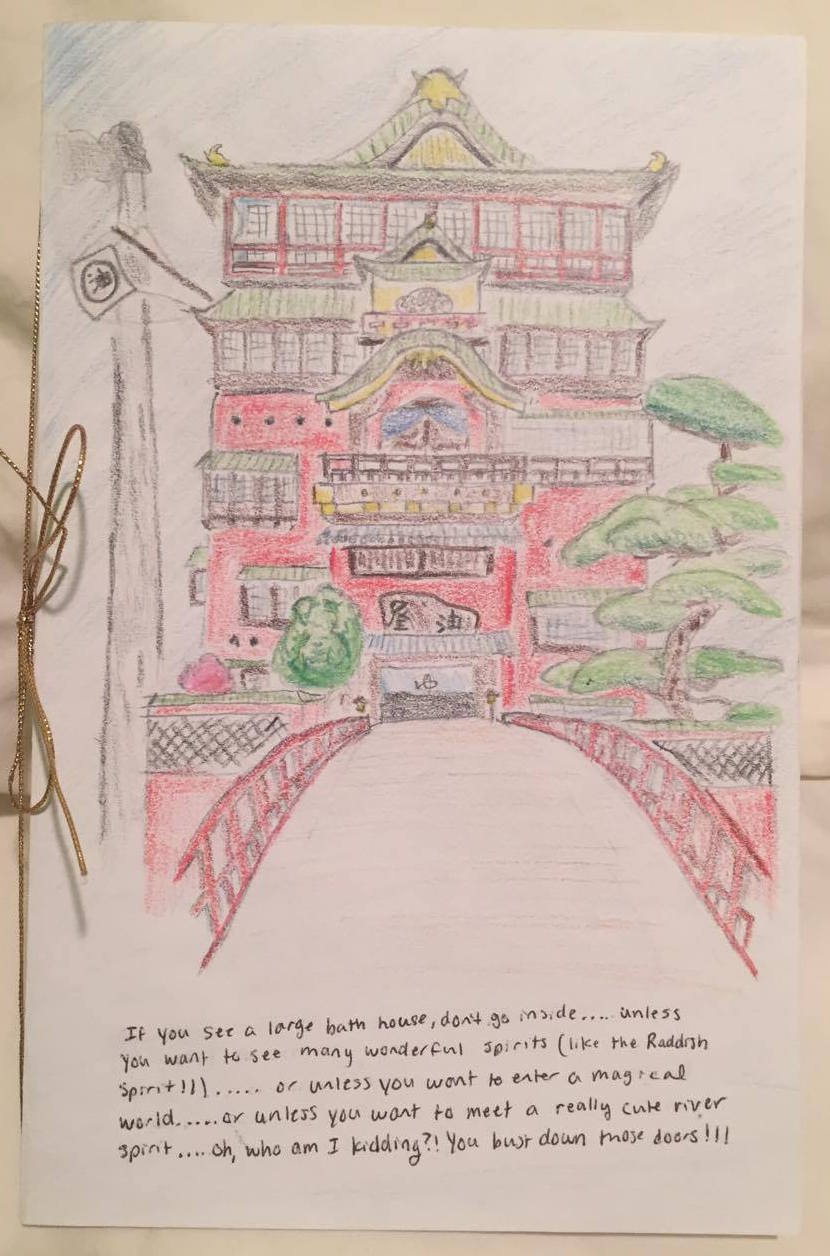 油
油屋
ゆ
If you see a large bath house, don't go inside.... unless
you want to see many wonderful spirits (like the Raddish
Spirit!!!)..... or unless you want to enter a magical
world.....or unless you want to meet a really cute river
spirit.... oh, who am I kidding?! You bust down those doors!!!